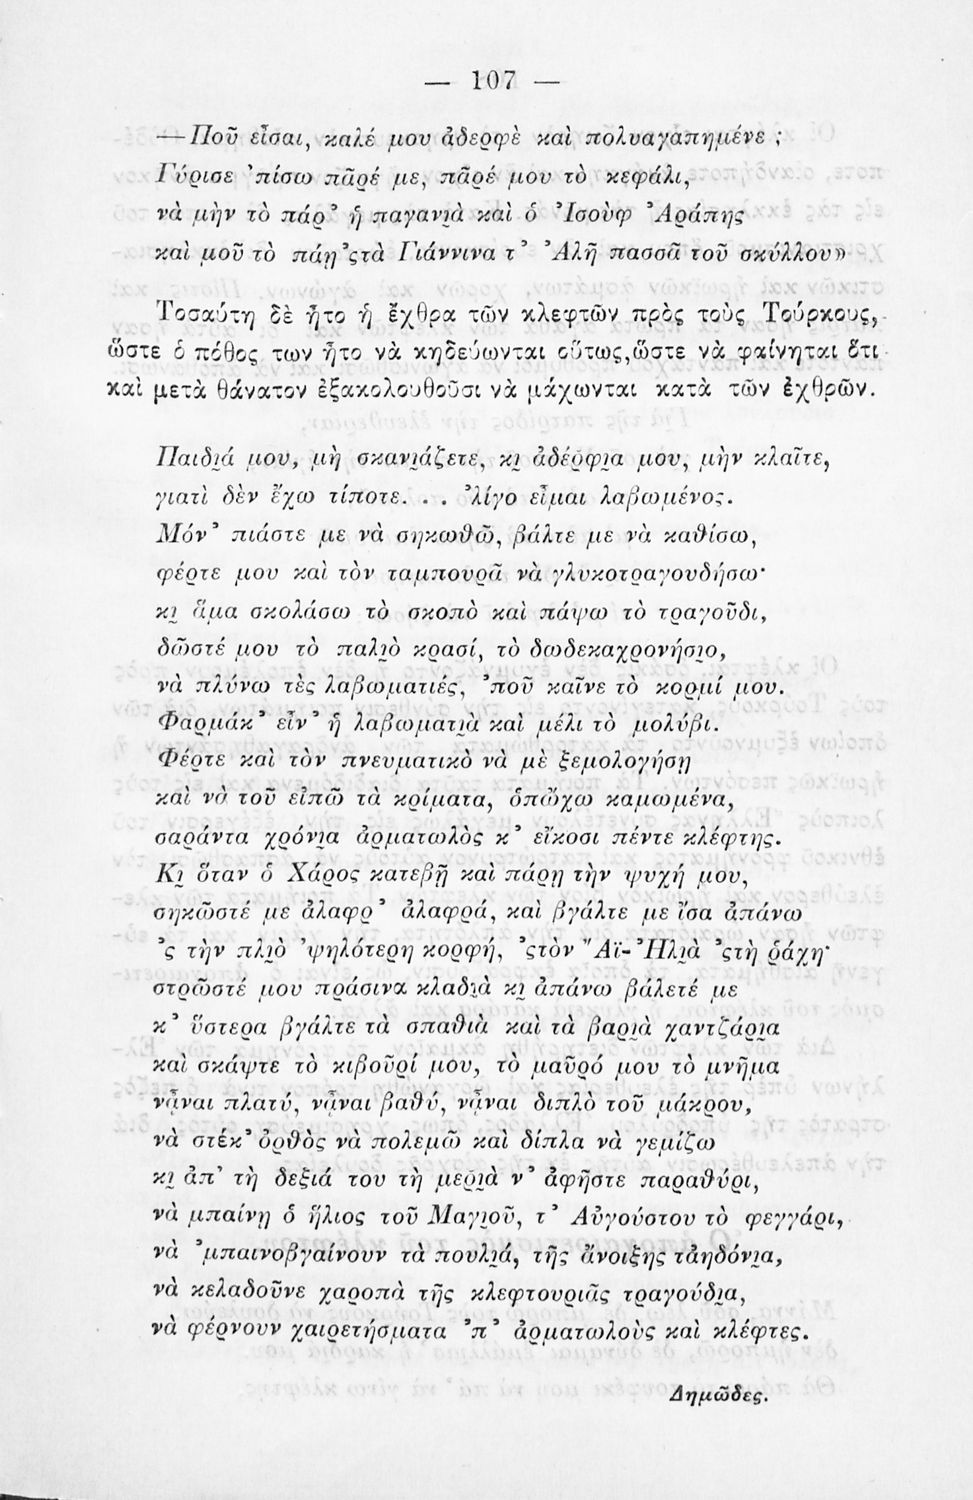 — 107 —
—Ποῦ εἶσαι, καλέ μου ἀδερφὲ καὶ πολυαγαπημένε ;
Γύρισε ’πίσω πᾶρέ με, πᾶρέ μου τὸ κεφάλι,
νὰ μὴν τὸ πάρ’ ἡ παγανι̯ὰ καὶ ὁ Ἰσοὺφ Ἀράπης
καὶ μοῦ τὸ πάῃ ’ςτὰ Γιάννινα τ’ Ἀλῆ πασσᾶ τοῦ σκύλλου»
Τοσαύτη δὲ ἦτο ἡ ἔχθρα τῶν κλεφτῶν πρὸς τοὺς Τούρκους,
ὥστε ὁ πόθος των ἦτο νὰ κηδεύωνται οὕτως, ὥστε νὰ φαίνηται ὅτι
καὶ μετὰ θάνατον ἐξακολουθοῦσι νὰ μάχωνται κατὰ τῶν ἐχθρῶν.
Παιδι̯ά μου, μὴ σκανι̯άζετε, κι̯ ἀδέρφι̯α μου, μὴν κλαῖτε,
γιατὶ δὲν ἔχω τίποτε. . . ’λίγο εἶμαι λαβωμένος.
Μόν’ πιάστε με νὰ σηκωθῶ, βάλτε με νὰ καθίσω,
φέρτε μου καὶ τὸν ταμπουρᾶ νὰ γλυκοτραγουδήσω·
κι̯ ἅμα σκολάσω τὸ σκοπὸ καὶ πάψω τὸ τραγοῦδι,
δῶστέ μου τὸ παλι̯ὸ κρασί, τὸ δωδεκαχρονήσι̯ο,
νὰ πλύνω τὲς λαβωματιές, ’ποῦ καῖνε τὸ κορμί μου.
Φαρμάκ’ εἶν’ ἡ λαβωματι̯ὰ καὶ μέλι τὸ μολύβι.
Φέρτε καὶ τὸν πνευματικὸ νὰ μὲ ξεμολογήσῃ
καὶ νὰ τοῦ εἰπῶ τὰ κρίματα, ὁπὤχω καμωμένα,
σαράντα χρόνι̯α ἀρματωλὸς κ’ εἴκοσι πέντε κλέφτης.
Κι̯ ὅταν ὁ Χάρος κατεβῇ καὶ πάρῃ τὴν ψυχή μου,
σηκῶστέ με ἀλαφρ’ ἀλαφρά, καὶ βγάλτε με ἴσα ἀπάνω
’ς τὴν πλι̯ὸ ’ψηλότερη κορφή, ’ςτὸν Ἄϊ-Ἠλι̯ὰ ’ςτὴ ῥάχη·
στρῶστέ μου πράσινα κλαδι̯ὰ κι̯ ἀπάνω βάλετέ με
κ’ ὕστερα βγάλτε τὰ σπαθιὰ καὶ τὰ βαρι̯ὰ χαντζάρι̯α
καὶ σκάψτε τὸ κιβοῦρί μου, τὸ μαῦρό μου τὸ μνῆμα
νᾆναι πλατύ, νᾆναι βαθύ, νᾆναι διπλὸ τοῦ μάκρου,
νὰ στέκ’ ὀρθὸς νὰ πολεμῶ καὶ δίπλα νὰ γεμίζω
κι̯ ἀπ’ τὴ δεξιά του τὴ μερι̯ὰ ν’ ἀφῆστε παραθύρι,
νὰ μπαίνῃ ὁ ἥλιος τοῦ Μαγι̯οῦ, τ’ Αὐγούστου τὸ φεγγάρι,
νὰ ’μπαινοβγαίνουν τὰ πουλι̯ά, τῆς ἄνοιξης τἀηδόνι̯α,
νὰ κελαδοῦνε χαροπὰ τῆς κλεφτουριᾶς τραγούδι̯α,
νὰ φέρνουν χαιρετήσματα ’π’ ἀρματωλοὺς καὶ κλέφτες.
Δημῶδες.